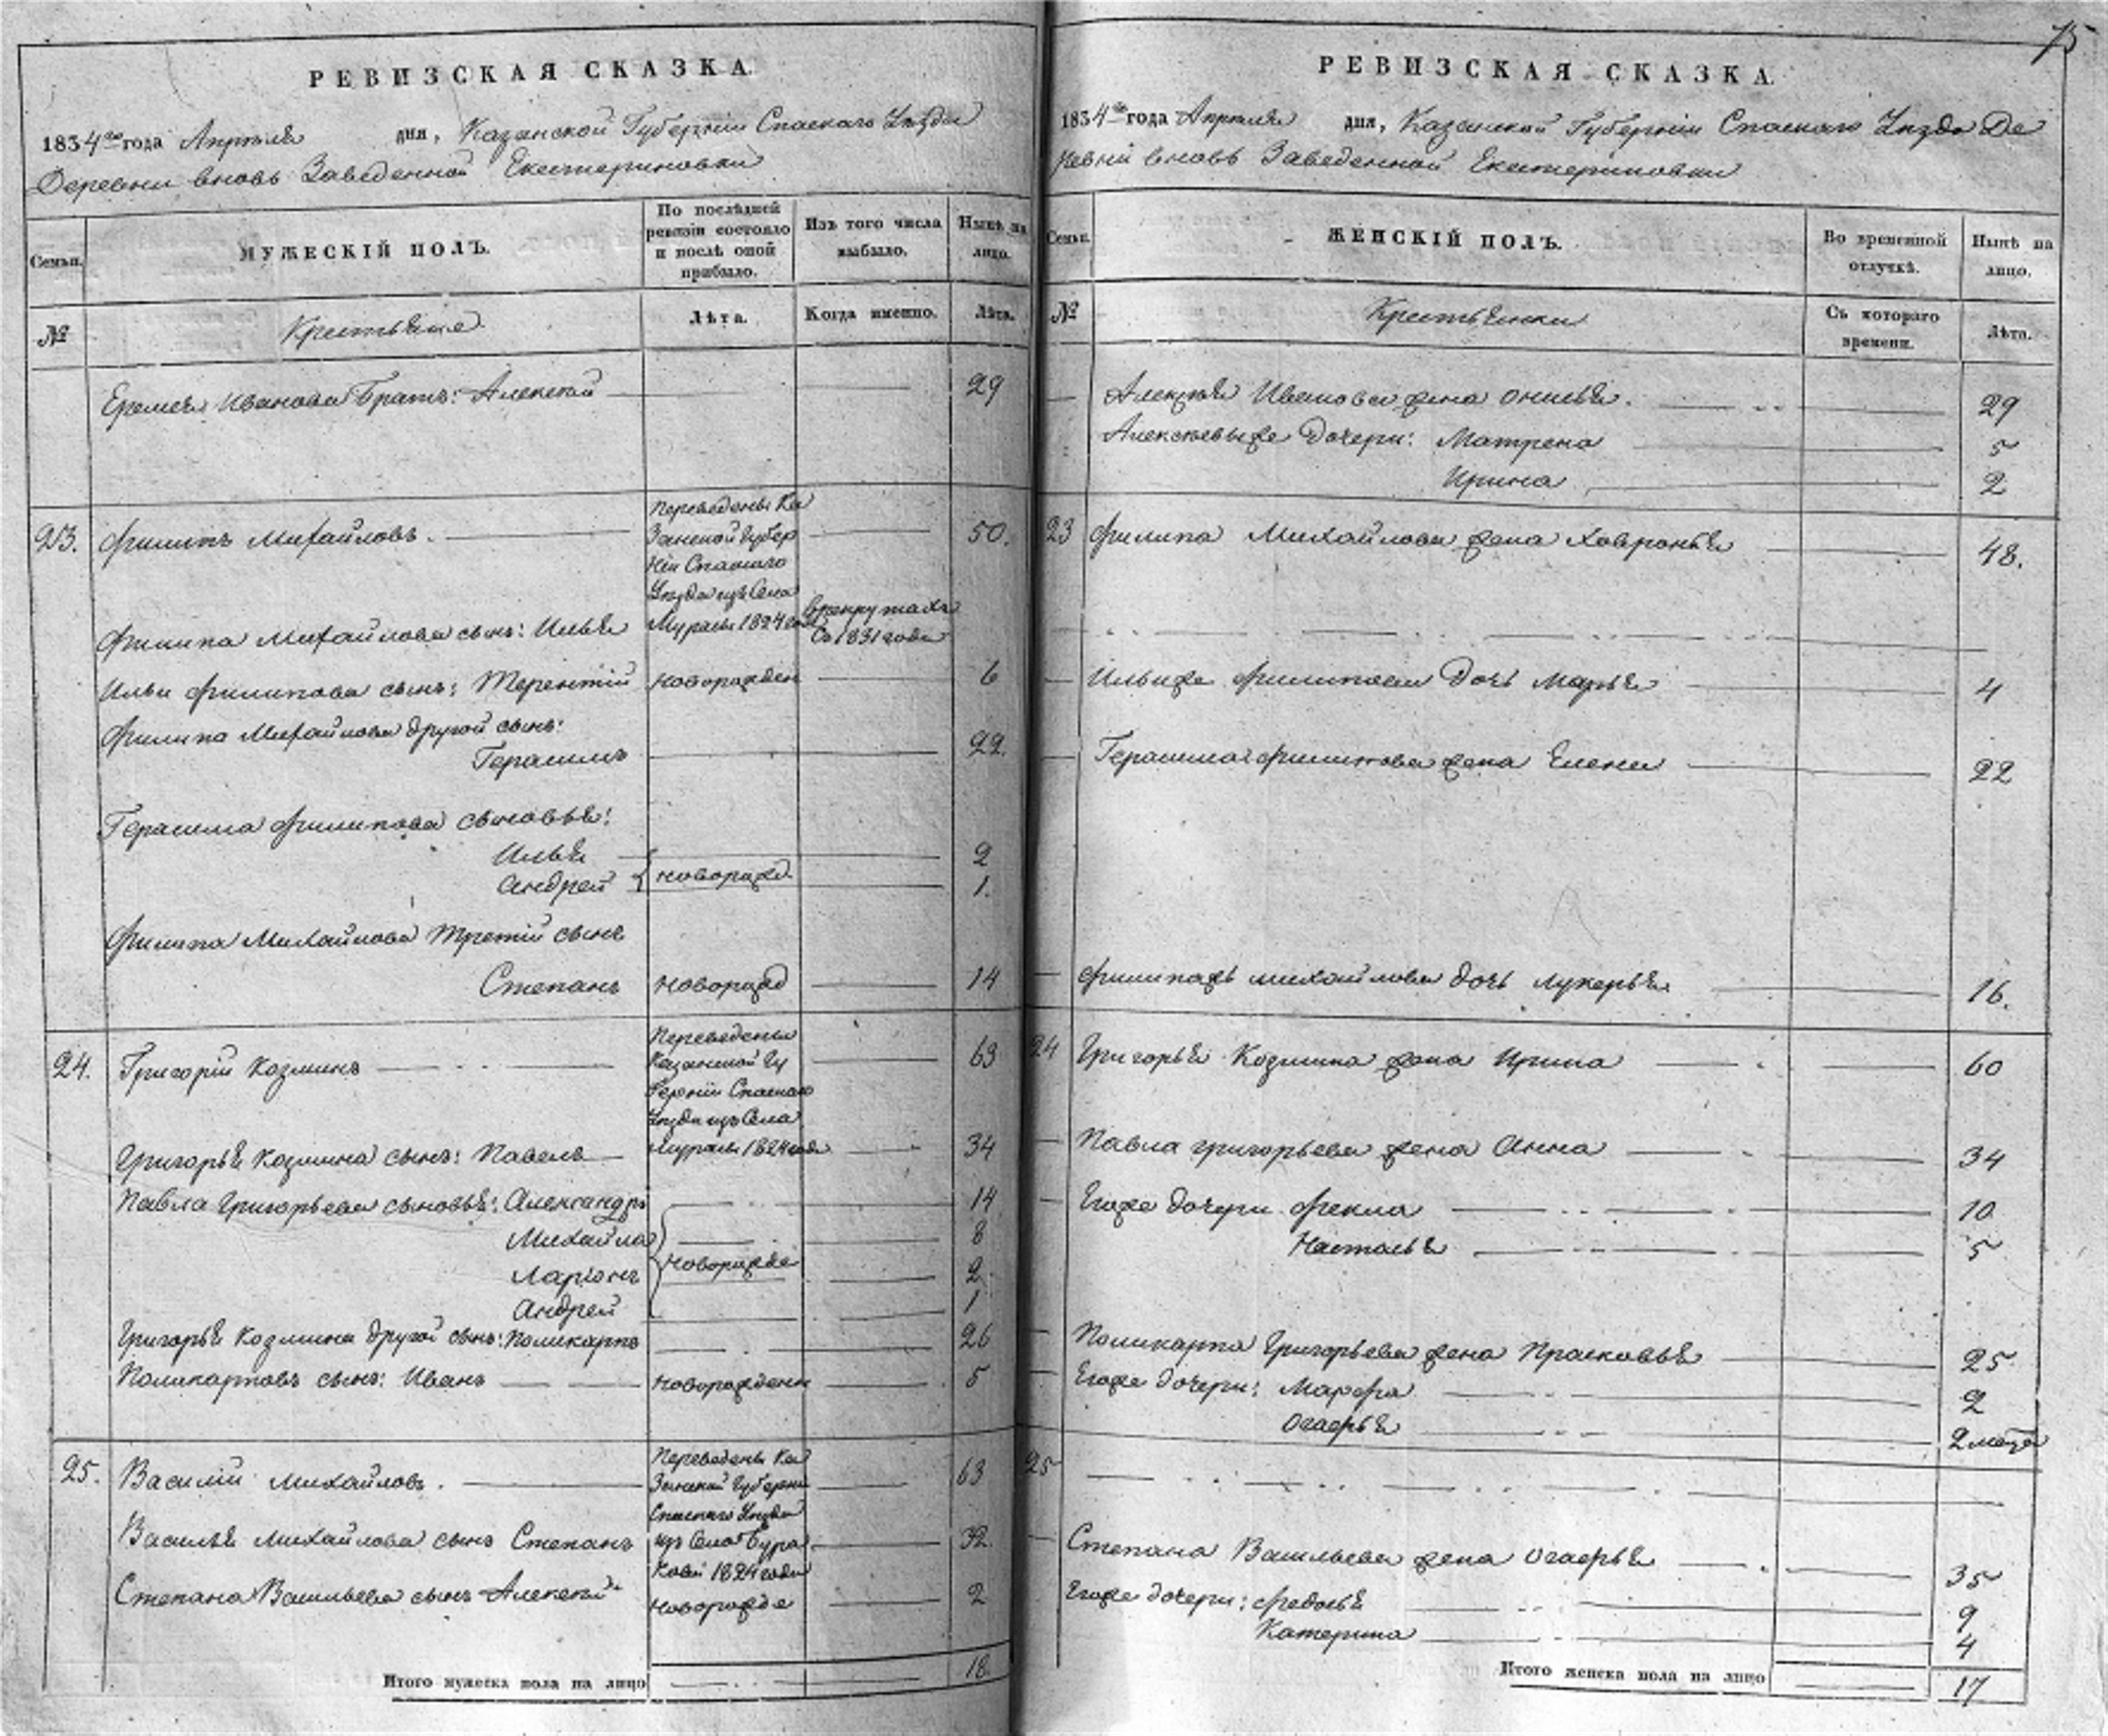 75
РЕВИЗСКАЯ СКАЗКА.
1834го года Апреля дня, Казанской Губернии Спаскаго Уезда
Деревни вновь Заведенной Екатериновки
Семьи.
МУЖЕСКІЙ ПОЛЪ.
По послѣдней ревизіи состояло и послѣ оной прибыло.
Изъ того числа выбыло.
Нынѣ на лицо.
№
Крестьяне
Лѣта.
Когда именно.
Лѣта.
Еремея Иванова Братъ: Алексей 29
23. Филипъ Михайловъ. Переведены Казанской Губерніи Спаскаго Уезда изъ Села 50.
Филипа Михайлова сынъ: Илья 1824 года в рекрутахъ Съ 1831 года
Ильи Филипова сынъ: Терентій новорожден 6
Филипа Михайлова другой сынъ:
Герасимъ 22.
Герасима Филипова сыновья:
Илья 2
Андрей новорожд. 1.
Филипа Михайлова третій сынъ
Степанъ новорожд 14
24. Григорій Козминъ Переведены Казанской Губерніи Спаскаго Уезда изъ Села 63
Григорья Козмина сынъ: Павелъ 1824 года 34
Павла Григорьева сыновья: Александръ 14
Михайла 8
Ларіонъ новорожде 2
Андрей 1
Григорья Козмина другой сынъ: Поликарпъ 26
Поликарповъ сынъ: Иванъ новорожден 5
25. Василій Михайловъ. Переведены Казанской Губерни Спаскаго Уезда 63
Василья Михайлова сынъ Степанъ изъ Села Буракови 1824 года 32.
Степана Васильева сынъ Алексей новорожде 2
Итого мужеска пола на лицо 18.
РЕВИЗСКАЯ СКАЗКА.
1834го года Апреля дня, Казанской Губерніи Спаскаго Уезда Де
ревни вновь Заведенной Екатериновки
Семьи.
ЖЕНСКІЙ ПОЛЪ.
Во временной отлучкѣ.
Нынѣ на лицо.
№
Крестьянки
Съ котораго времени.
Лѣта.
Алексея Иванова жена Онисья. 29
Алексеевыже дочери: Матрена 5
Ирина 2
23 Филипа Михайлова жена Хавронья 48.
Ильиже Филипова дочь Марья 4
Герасима Филипова жена Елена 22
Филипажъ Михайлова дочь Лукерья 16.
24 Григорья Козмина жена Ирина 60
Павла Григорьева жена Анна 34
Егоже дочери Фекла 10
Настасья 5
Поликарпа Григорьева жена Прасковья 25
Егоже дочери: Марфа 2
Огаѳья 2 месеца
25
Степана Васильева жена Огафья 35
Егоже дочери: Федосья 9
Катерина 4
Итого женска пола на лицо 17